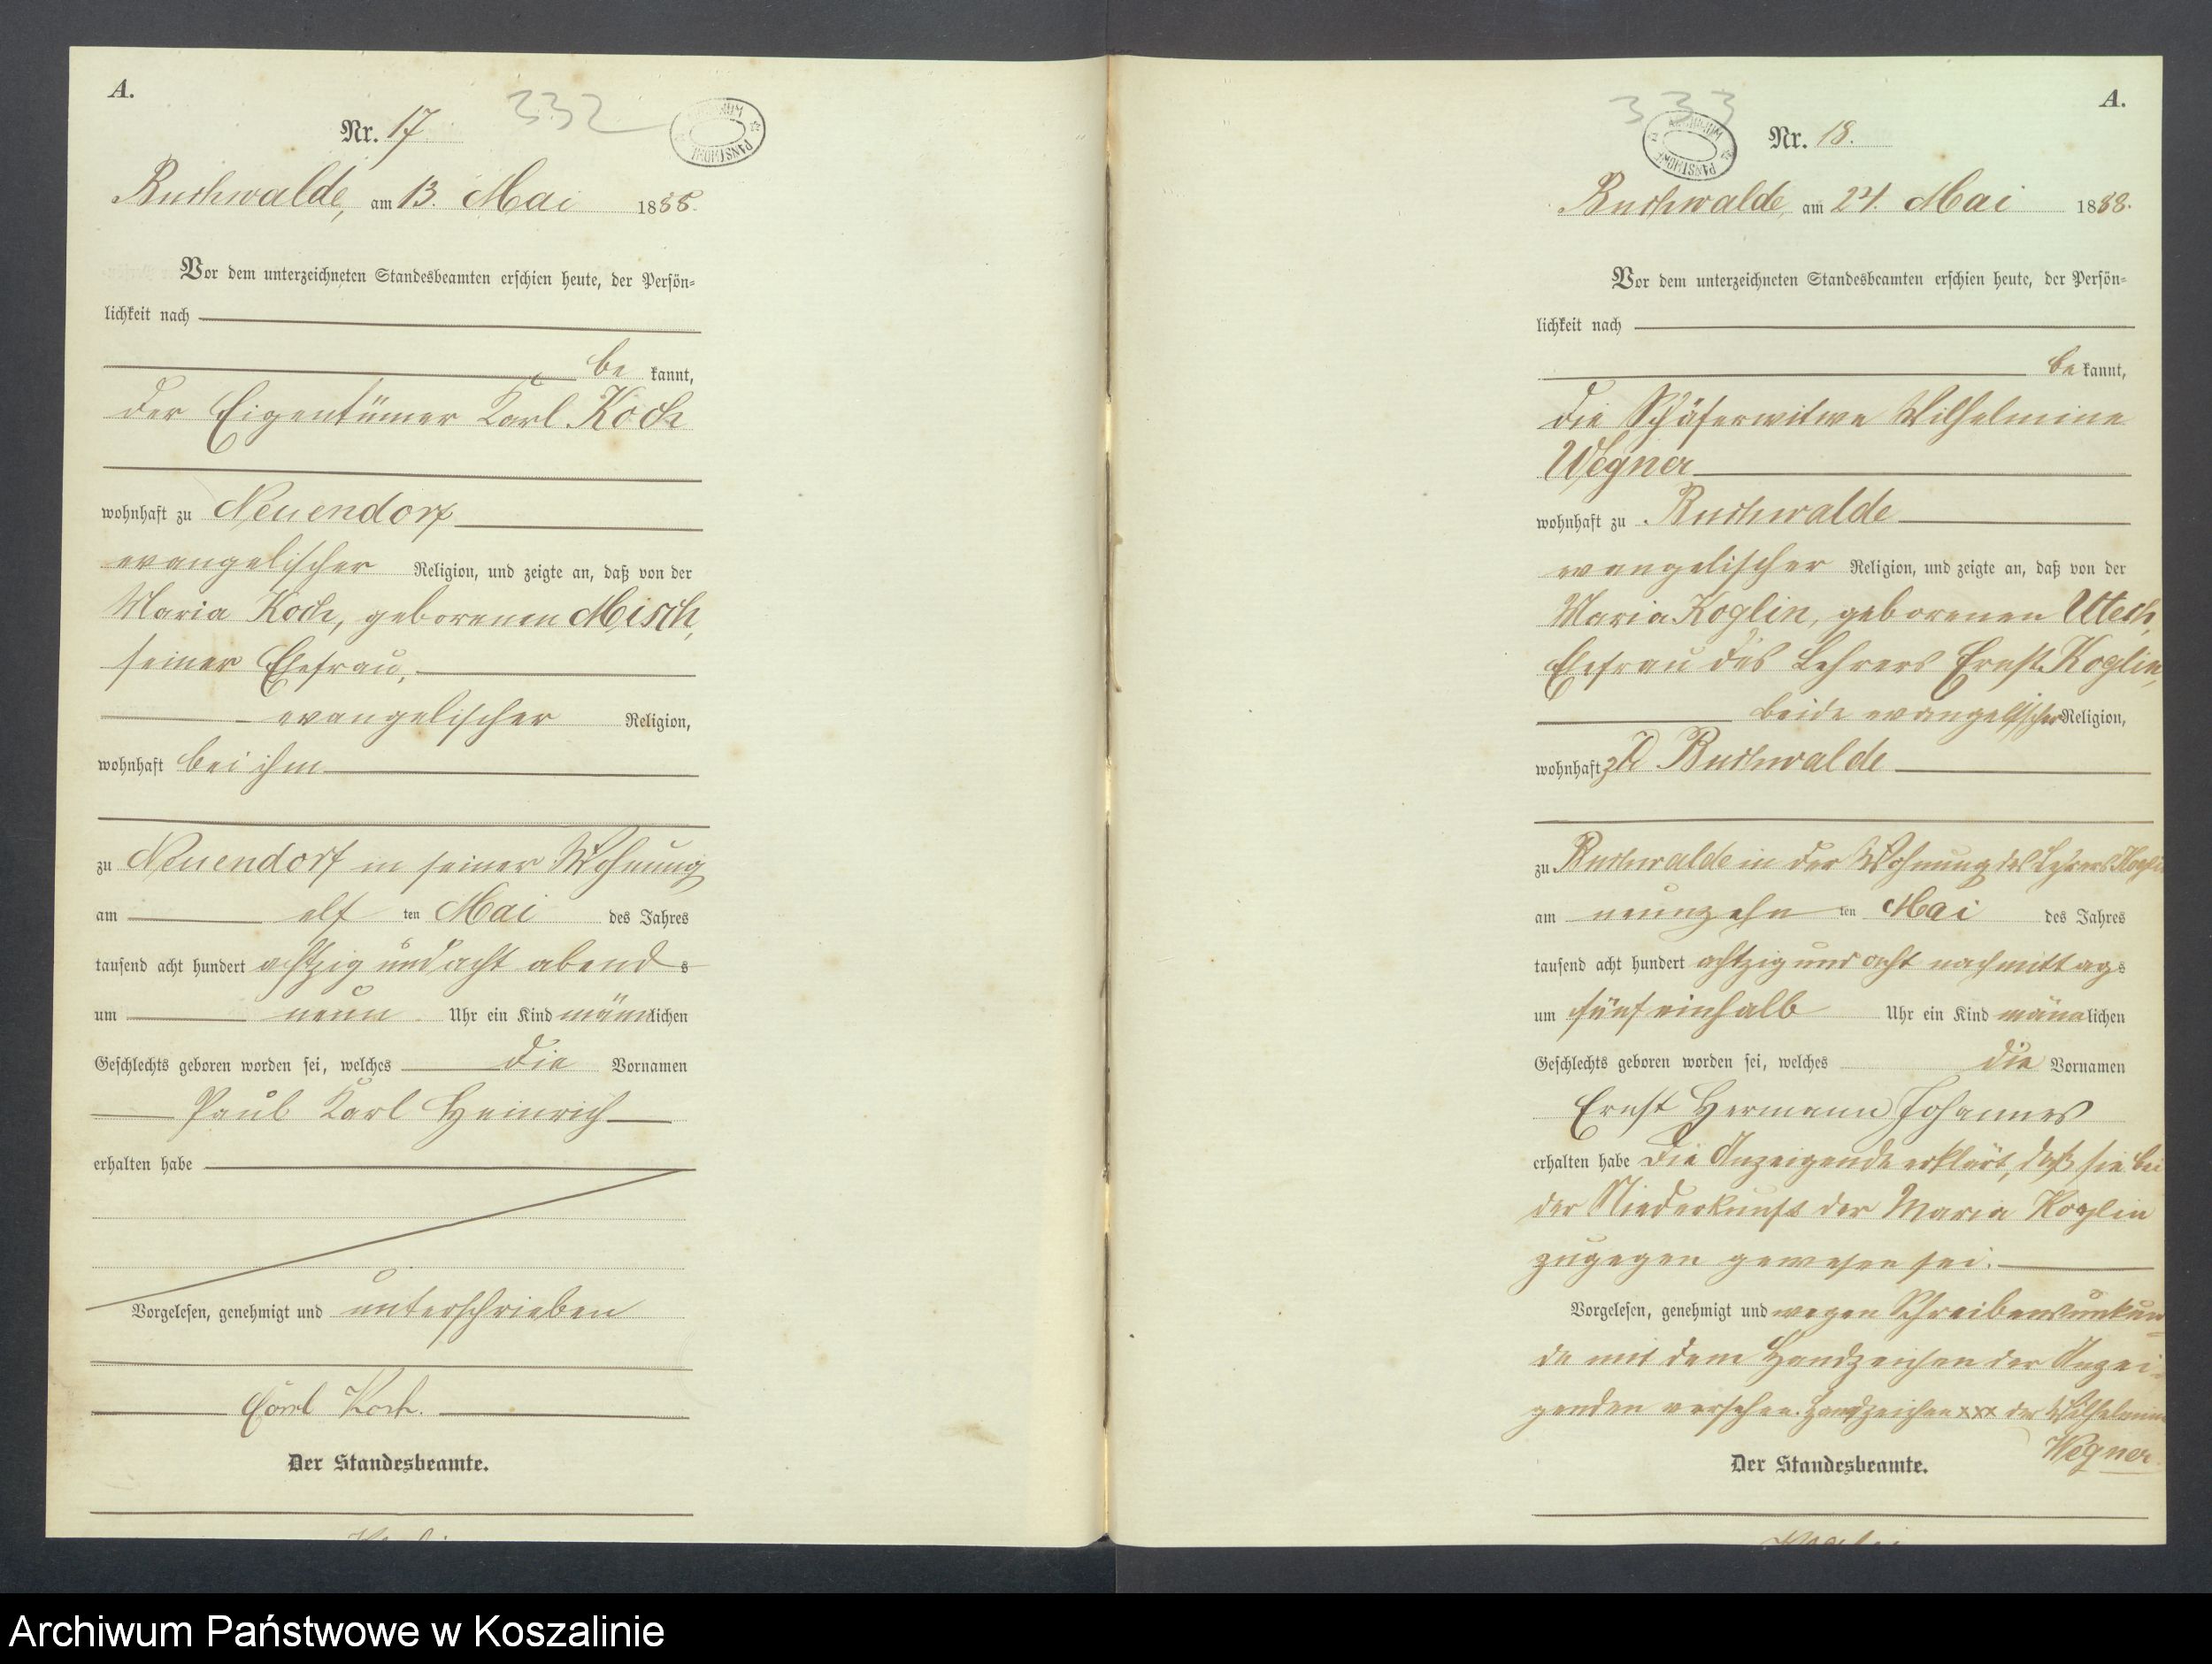 A.
Nr. 17
332
Buchwalde, am 13. Mai 1888.
Vor dem unterzeichneten Standesbeamten erschien heute, der Persön-
lichkeit nach
be kannt,
der Eigentümer Karl Koch
wohnhaft zu Neuendorf
evangelischer Religion, und zeigte an, daß von der
Maria Koch, geborenen Misch,
seiner Ehefrau,
evangelischer Religion,
wohnhaft bei ihm
zu Neuendorf in seiner Wohnung
am elf ten Mai des Jahres
tausend acht hundert achtzig und acht abend s
um neun Uhr ein Kind männlichen
Geschlechts geboren worden sei, welches die Vornamen
Paul Karl Heinrich
erhalten habe
Vorgelesen, genehmigt und unterschrieben
Carl Koch.
Der Standesbeamte.
A.
333
Nr. 18.
Buchwalde, am 24. Mai 1888.
Vor dem unterzeichneten Standesbeamten erschien heute, der Persön-
lichkeit nach
be kannt,
die Schäferwitwe Wilhelmine
Wegner
wohnhaft zu Buchwalde
evangelischer Religion, und zeigte an, daß von der
Maria Koglin, geborenen Utech,
Ehefrau des Lehrers Ernst Koglin,
beide evangelischer Religion,
wohnhaft zu Buchwalde
zu Buchwalde in der Wohnung des Lehrers Koglin
am neunzehn ten Mai des Jahres
tausend acht hundert achtzig und acht nachmittags
um fünf einhalb Uhr ein Kind männlichen
Geschlechts geboren worden sei, welches die Vornamen
Ernst Hermann Johannes
erhalten habe Die Anzeigende erklärt, daß sie bei
der Niederkunft der Maria Koglin
zugegen gewesen sei.
Vorgelesen, genehmigt und wegen Schreibensunkun-
de mit dem Handzeichen der Anzei-
genden versehen. Handzeichen xxx der Wilhelmine
Wegner
Der Standesbeamte.
Archiwum Państwowe w Koszalinie